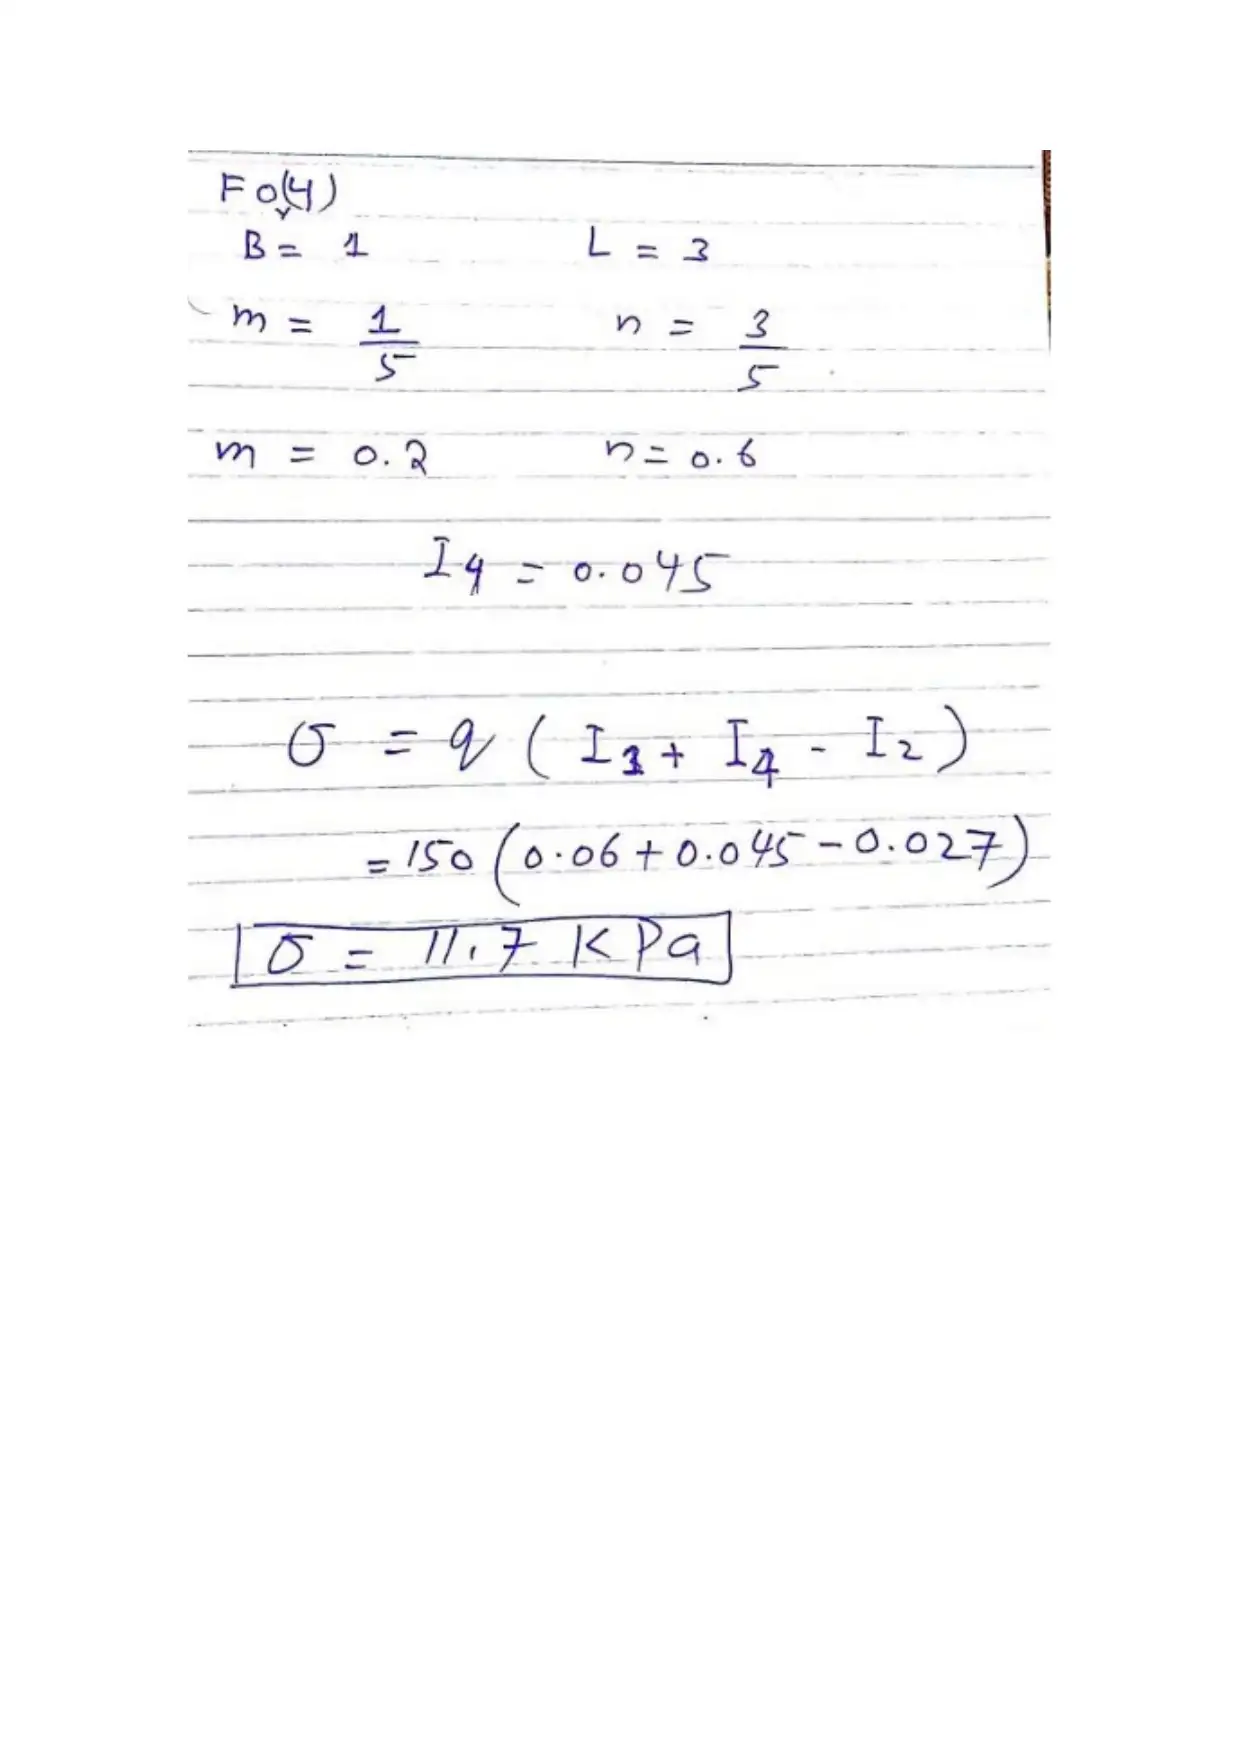 Fo(4)
B = 1 L = 3
m = 1/5 n = 3/5
m = 0.2 n = 0.6
I4 = 0.045
σ = q ( I1 + I4 - I2 )
= 150 ( 0.06 + 0.045 - 0.027 )
σ = 11.7 KPa